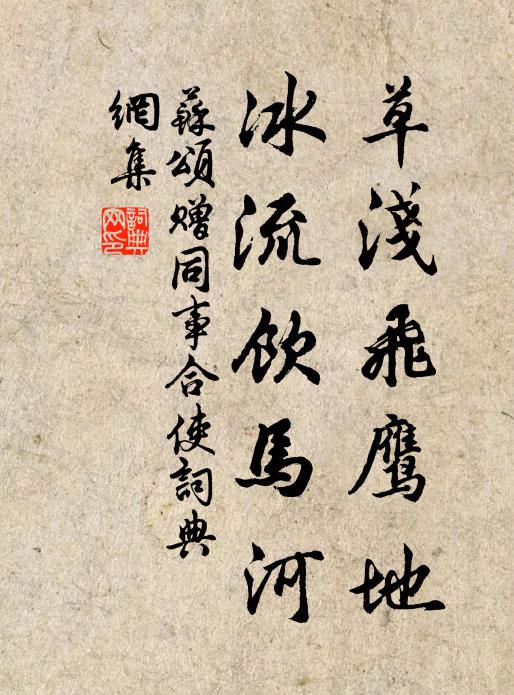 草淺飛鷹地
冰流飲馬河
蘇頌贈同事合使詞典
網集
詞典
网印